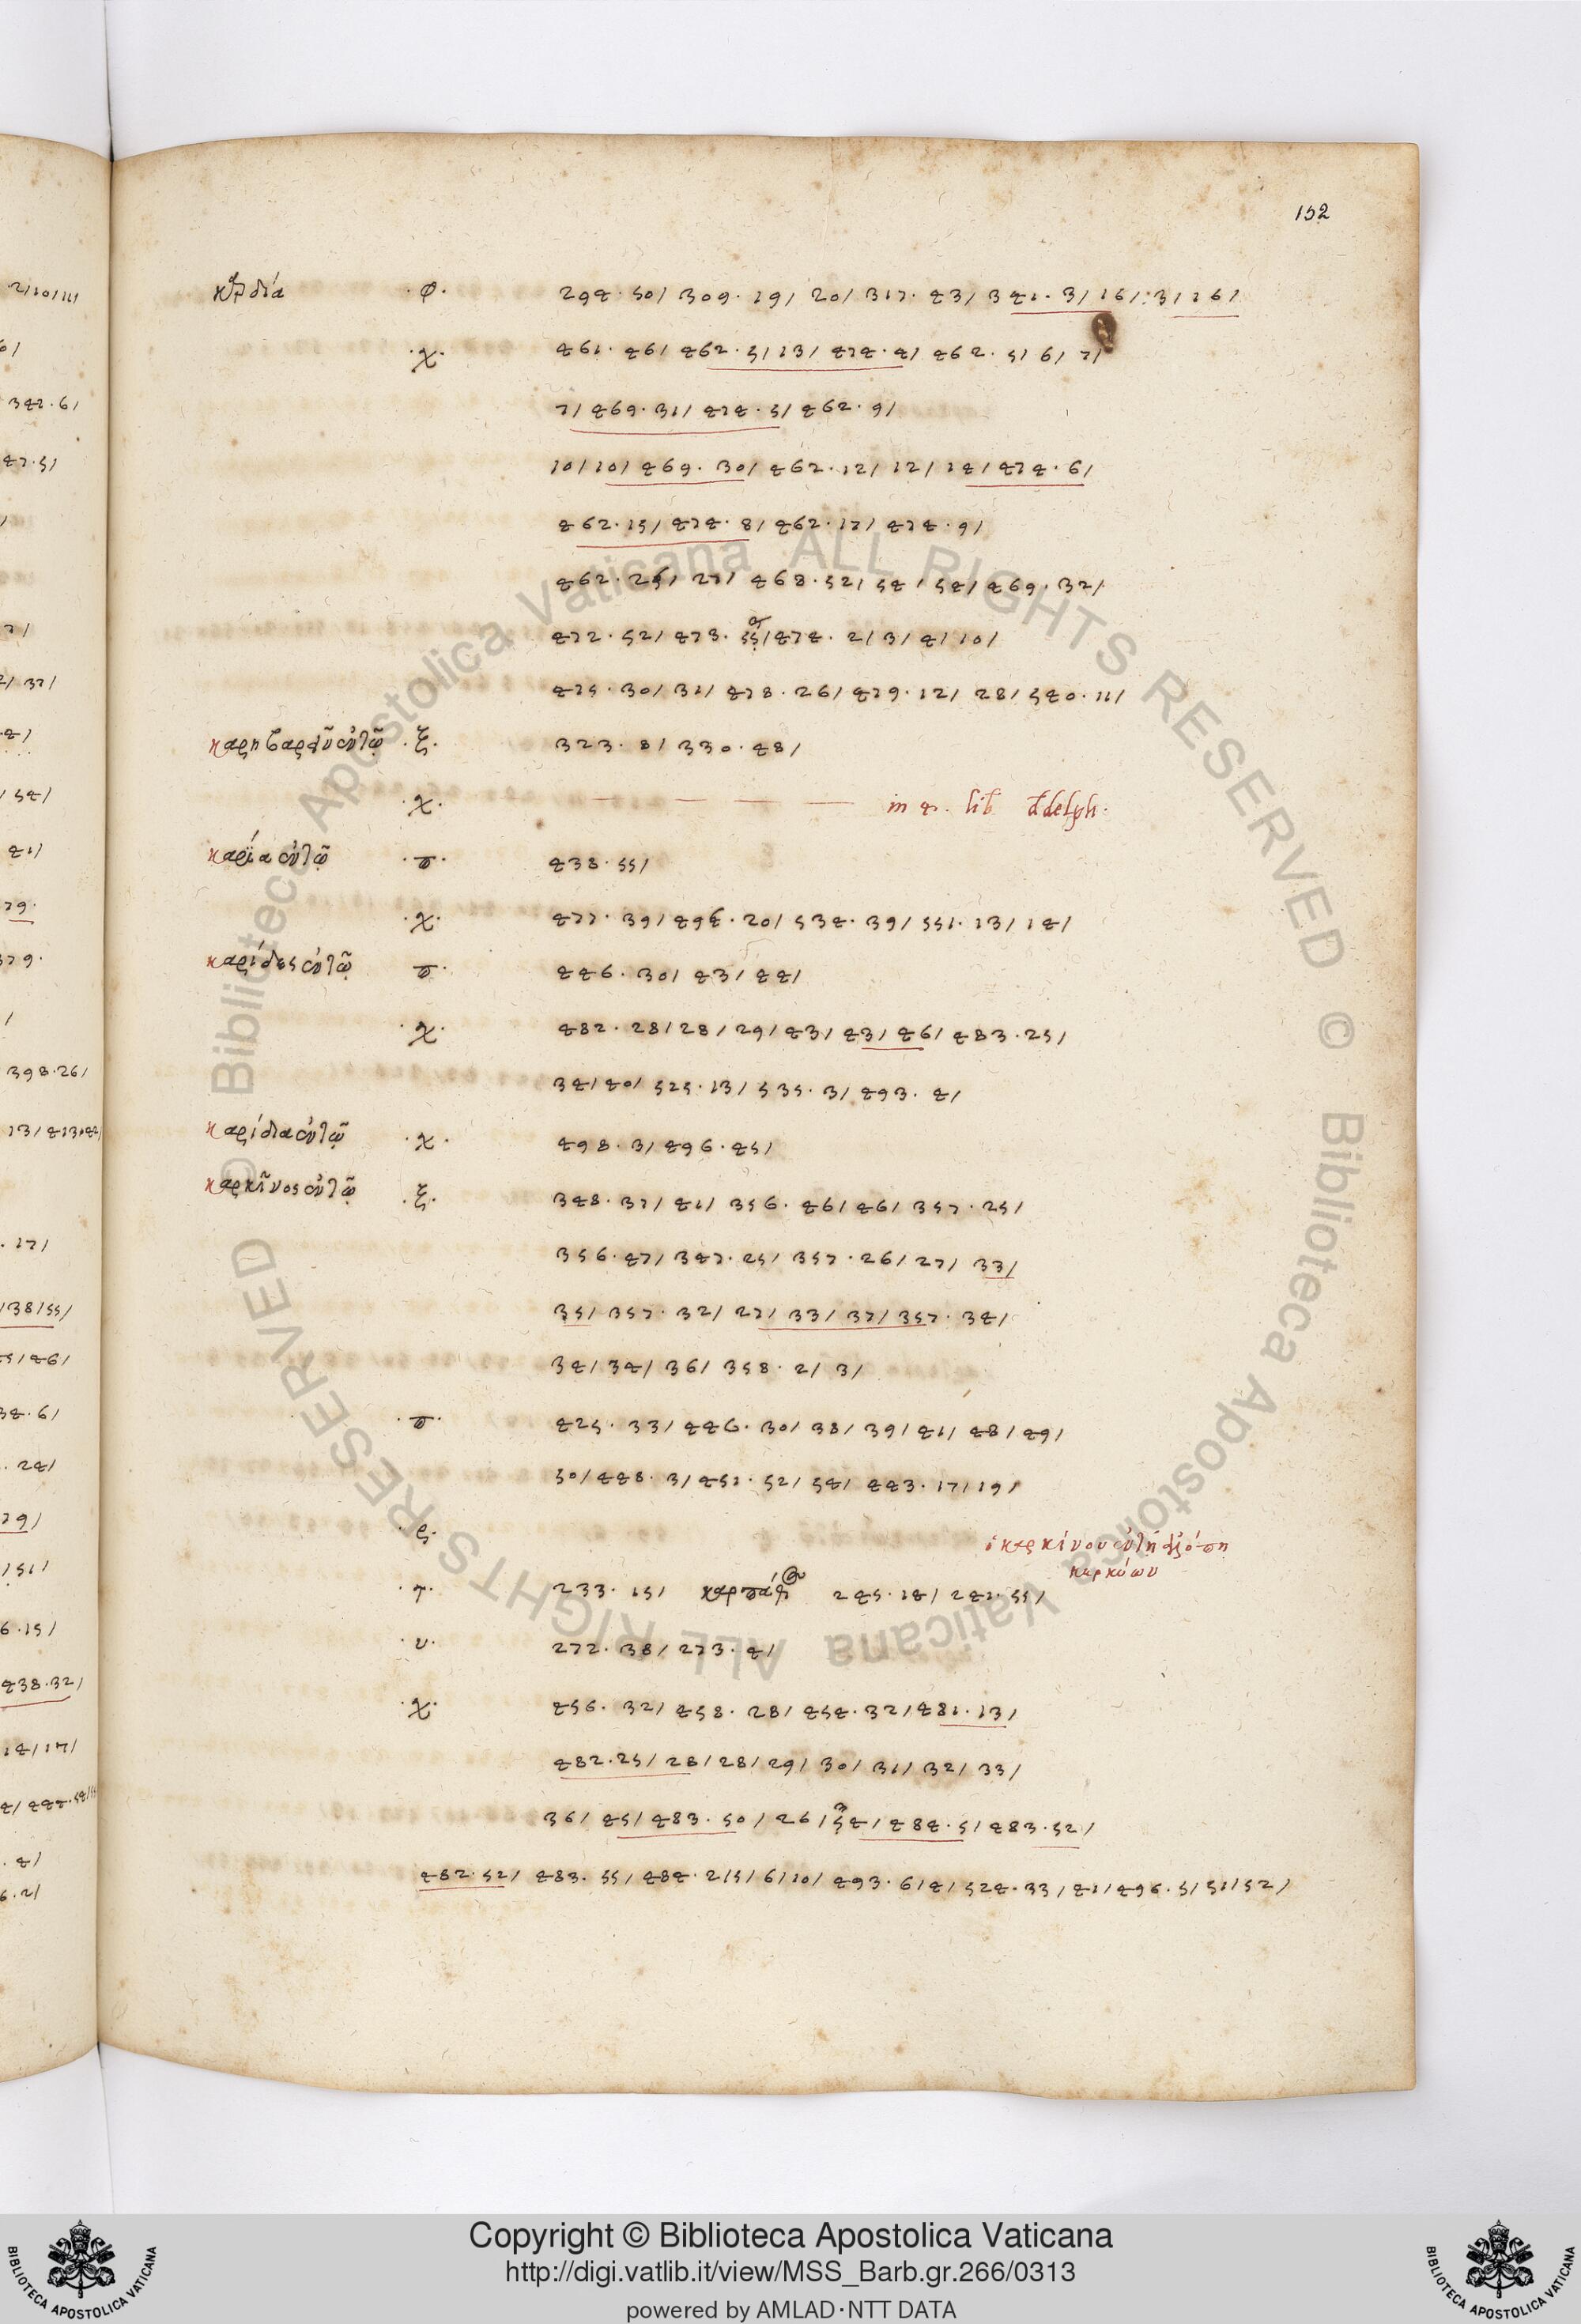 152
καρδία ·φ· 294·50/ 309·19/ 20/ 317·43/ 341·3/ 16/:3/ 16/
·χ· 461·46/ 462·5/ 13/ 474·4/ 462·5/ 6/ 7/
7/ 469·31/ 474·5/ 462·9/
10/ 10/ 469·30/ 462·12/ 12/ 14/ 474·6/
462·15/ 474·8/ 462·17/ 474·9/
462·25/ 27/ 468·52/ 54/ 54/ 469·32/
472·52/ 473·55/ 474·2/ 3/ 4/ 10/
475·30/ 31/ 478·26/ 479·12/ 28/ 540·11/
·ξ· 323·8/ 330·48/
·χ· — — — — in 4. lib
·π· 438·55/
·χ· 477·39/ 496·20/ 534·39/ 551·13/ 14/
καρίδες π· 446·30/ 43/ 44/
·χ· 482·28/ 28/ 29/ 43/ 43/ 46/ 483·25/
34/ 40/ 525·13/ 535·3/ 493·4/
καρίδια ·χ· 498·3/ 496·45/
καρκῖνος ·ξ· 348·37/ 41/ 356·46/ 46/ 357·25/
356·47/ 347·25/ 357·26/ 27/ 33/
35/ 357·32/ 27/ 33/ 37/ 357·34/
34/ 34/ 36/ 358·2/ 3/
·π· 425·33/ 446·30/ 38/ 39/ 41/ 48/ 49/
50/ 448·3/ 451·52/ 54/ 443·17/ 19/
·ς· καρκίνου
·τ· 233·15/ 245·14/ 241·55/
·υ· 272·38/ 273·4/
·χ· 456·32/ 458·28/ 454·32/ 481·13/
482·25/ 28/ 28/ 29/ 30/ 31/ 32/ 33/
36/ 45/ 483·50/ 26/ 54/ 484·5/ 483·52/
482·52/ 483·55/ 484·2/5/ 6/10/ 493·6/4/ 524·33/ 41/ 496·5/ 51/52/
Copyright © Biblioteca Apostolica Vaticana
http://digi.vatlib.it/view/MSS_Barb.gr.266/0313
powered by AMLAD·NTT DATA